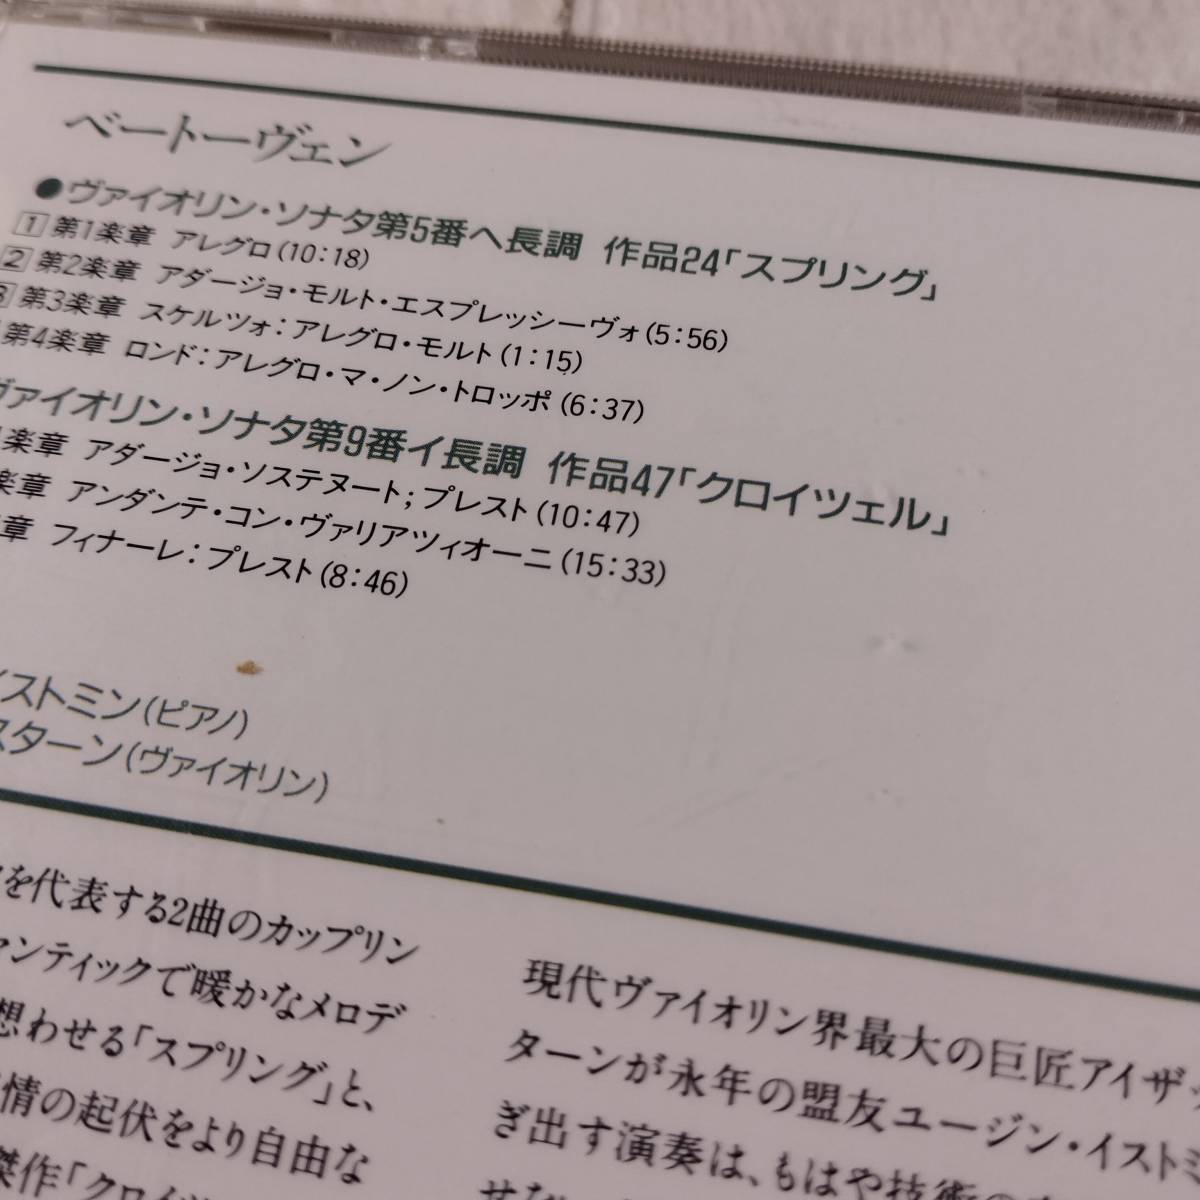 ベートーヴェン
●ヴァイオリン・ソナタ第5番ヘ長調 作品24「スプリング」
1 第1楽章 アレグロ(10:18)
2 第2楽章 アダージョ・モルト・エスプレッシーヴォ(5:56)
3 第3楽章 スケルツォ:アレグロ・モルト(1:15)
第4楽章 ロンド:アレグロ・マ・ノン・トロッポ(6:37)
ヴァイオリン・ソナタ第9番イ長調 作品47「クロイツェル」
楽章 アダージョ・ソステヌート;プレスト(10:47)
楽章 アンダンテ・コン・ヴァリアツィオーニ(15:33)
章 フィナーレ:プレスト(8:46)
イストミン(ピアノ)
スターン(ヴァイオリン)
を代表する2曲のカップリン
ンティックで暖かなメロデ
想わせる「スプリング」と、
情の起伏をより自由な
傑作「クロイツ
現代ヴァイオリン界最大の巨匠アイザッ
ターンが永年の盟友ユージン・イストミ
ぎ出す演奏は、もはや技術の
せな